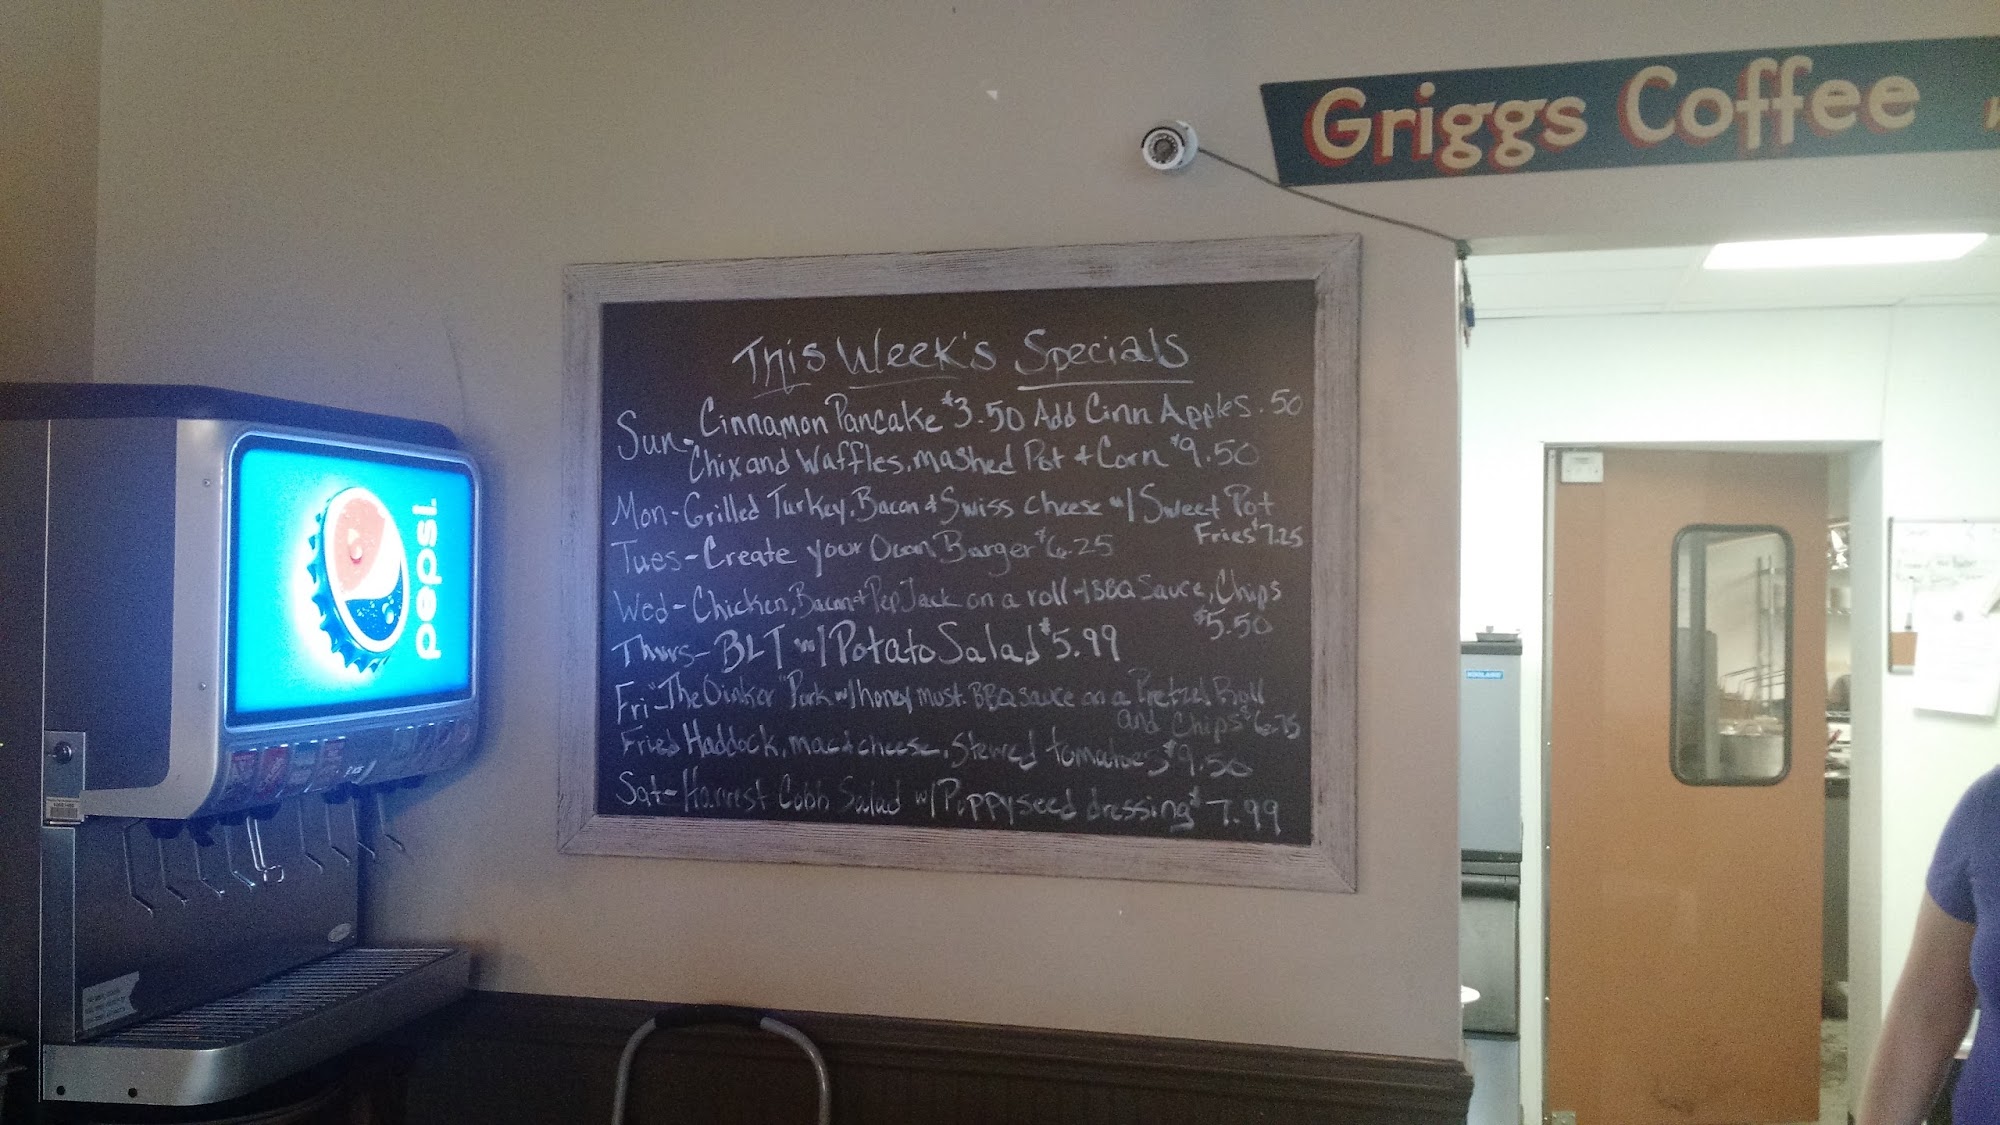 Griggs Coffee
This Week's Specials
Sun- Cinnamon Pancake $3.50 Add Cinn Apples .50
Chix and Waffles, mashed Pot + Corn $9.50
Mon- Grilled Turkey, Bacon + Swiss cheese w/ Sweet Pot
Fries $7.25
Tues- Create your Own Burger $6.25
Wed- Chicken, Bacon + Pep Jack on a roll w/ BBQ Sauce, Chips
$5.50
Thurs- BLT w/ Potato Salad $5.99
Fri- "The Oinker" Pork w/ honey must. BBQ sauce on a Pretzel Roll
and Chips $6.75
Fried Haddock, mac & cheese, Stewed tomatoes $9.50
Sat- Harvest Cobb Salad w/ Poppyseed dressing $7.99
pepsi